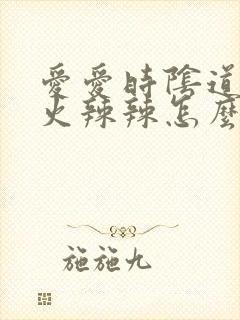 愛愛時陰道
火辣辣怎麼
施施九